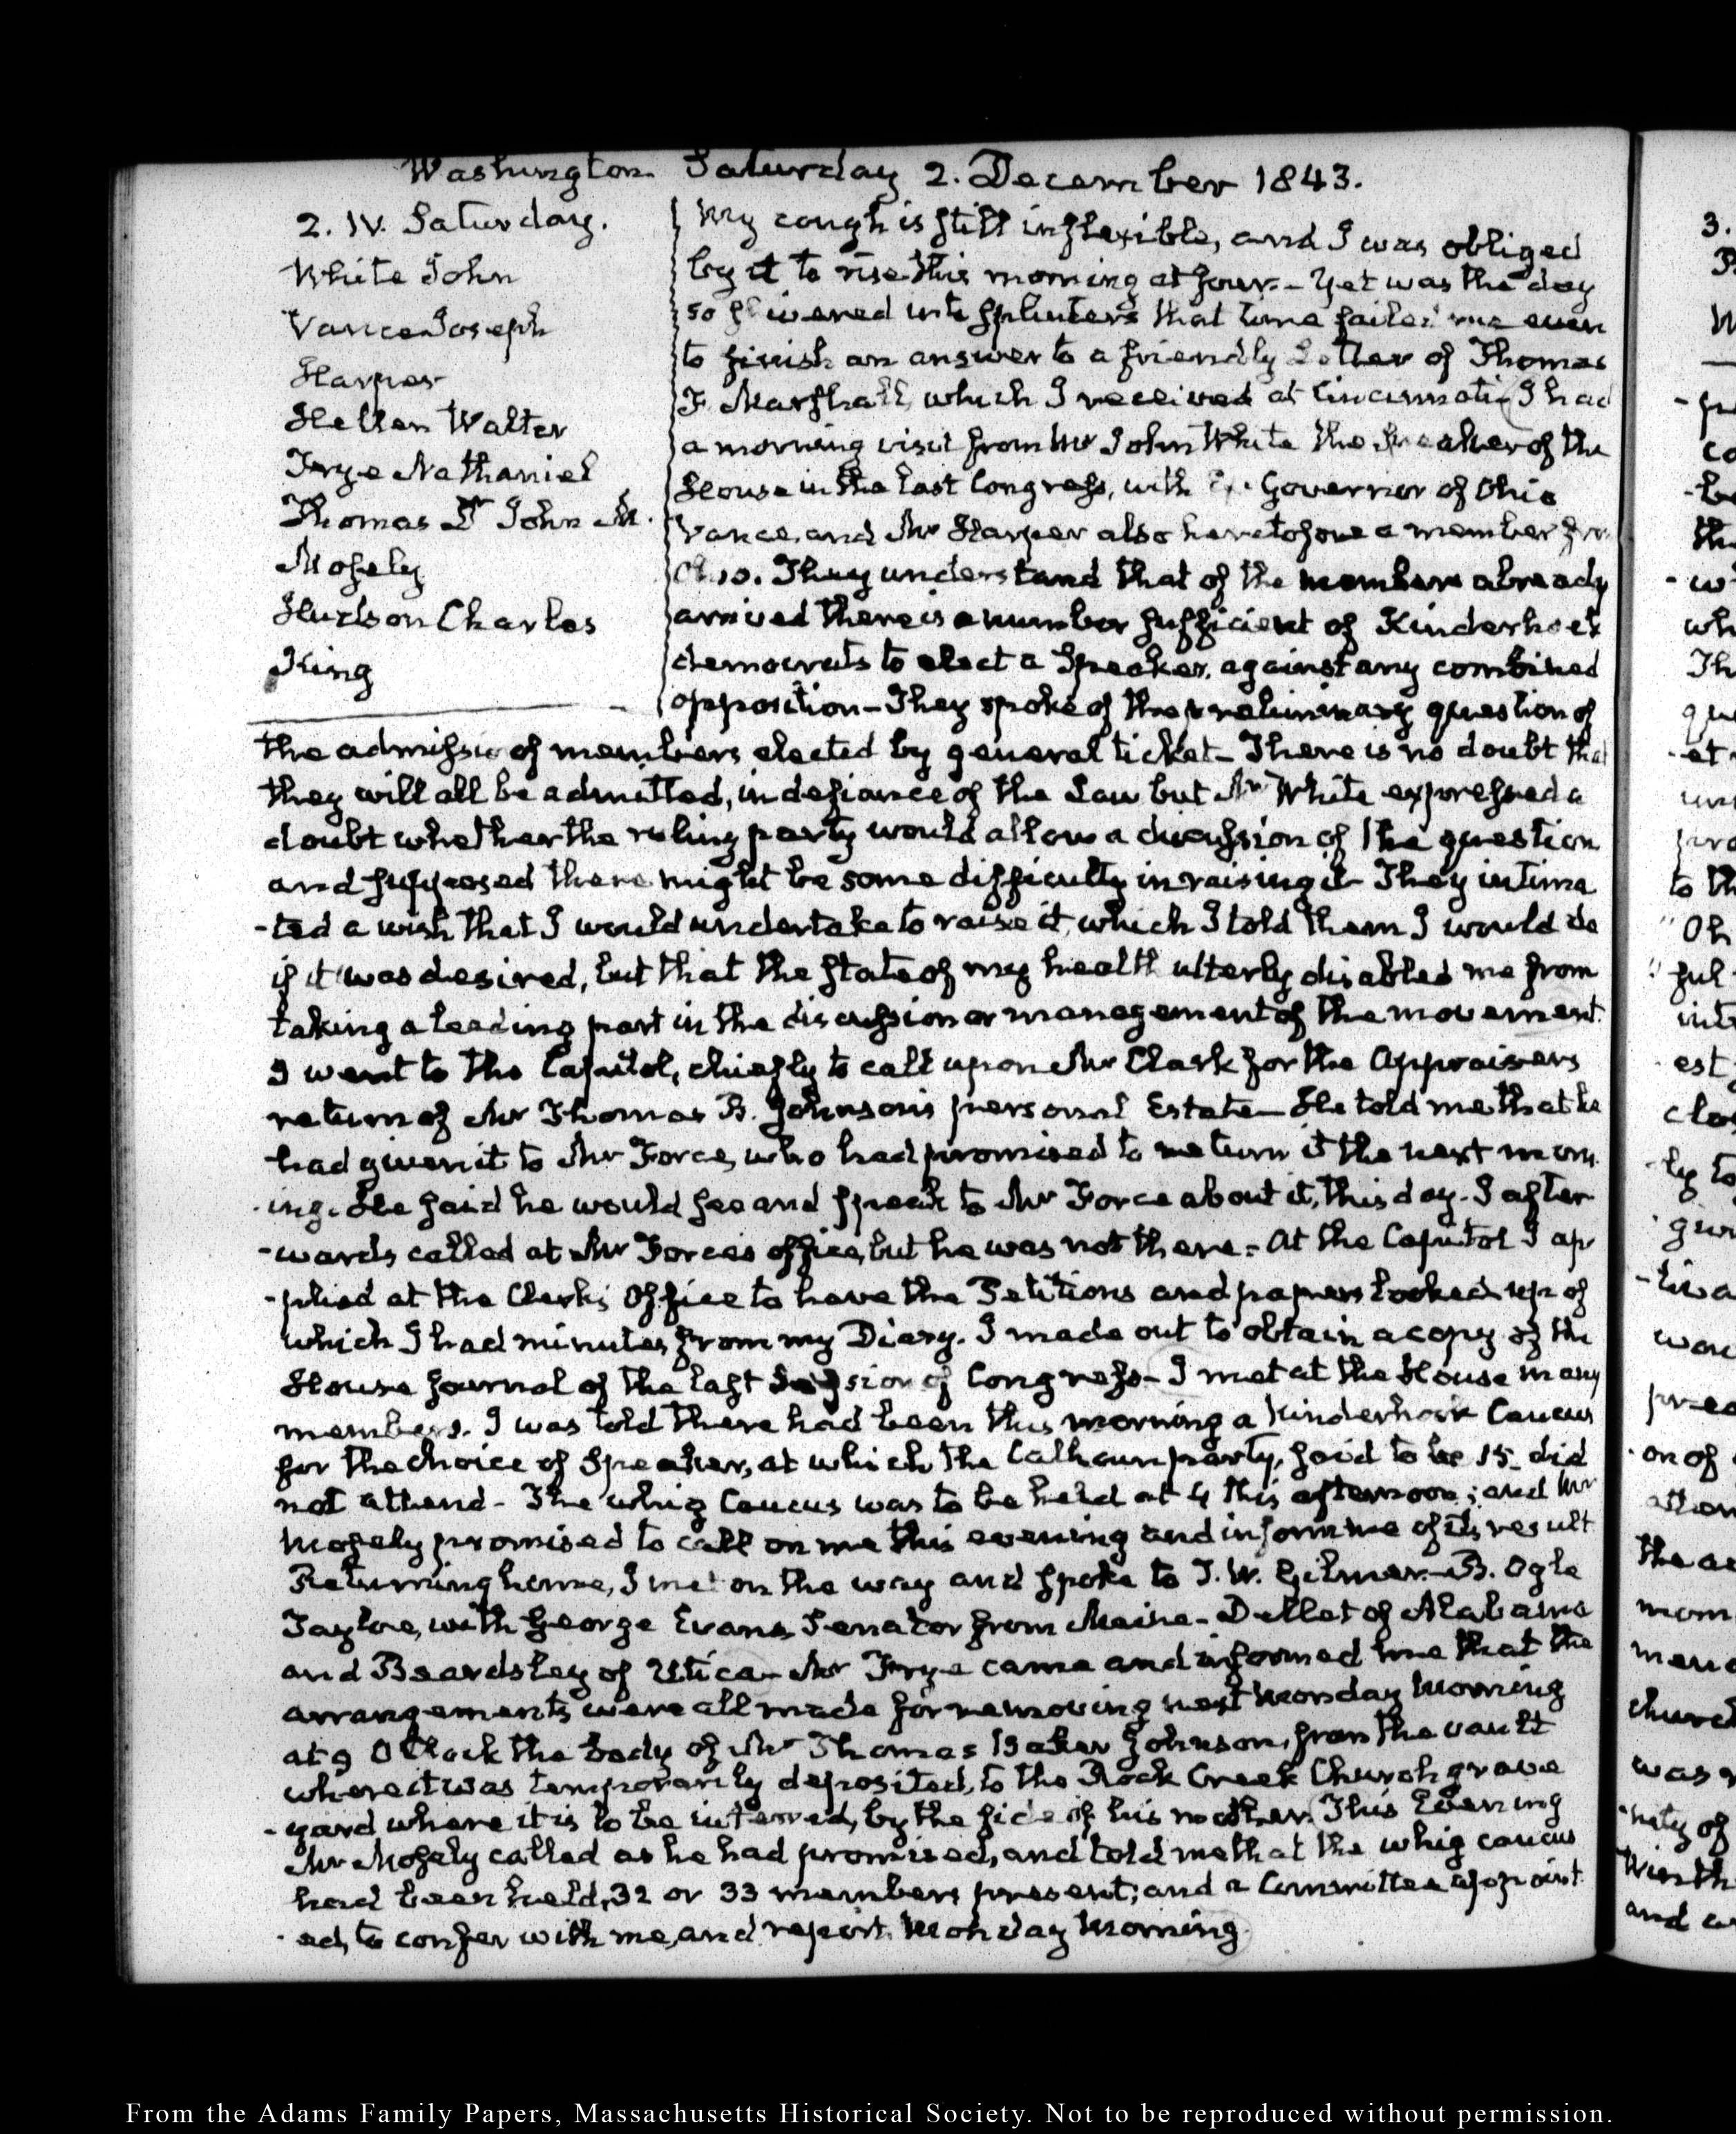 Washington Saturday 2. December 1843.
2. IV. Saturday.
White John
Vance Joseph
Harper
Hellen Walter
Frye Nathaniel
Thomas Dr John M.
Mosely
Hudson Charles
King
My cough is still inflexible, and I was obliged
by it to rise this morning at four.- Yet was the day
so shivered into splinters that time failed me even
to finish an answer to a friendly Letter of Thomas
F. Marshall, which I received at Cincinnati I had
a morning visit from Mr John White the Speaker of the
House in the last Congress, with Ex-Governor of Ohio
Vance, and Mr Harper also heretofore a member from
Ohio. They understand that of the members already
arrived there is a number sufficient of Kinderhook
democrats to elect a Speaker, against any combined
opposition- They spoke of the preliminary question of
the admission of members elected by general ticket- There is no doubt that
they will all be admitted, in defiance of the Law but Mr White expressed a
doubt whether the ruling party would allow a discussion of the question
and supposed there might be some difficulty in raising it- They intima
-ted a wish that I would undertake to raise it, which I told them I would do
if it was desired, but that the state of my health utterly disabled me from
taking a leading part in the discussion or management of the movement.
I went to the Capitol, chiefly to call upon Mr Clark for the Appraisers
return of Mr Thomas B. Johnson's personal Estate- He told me that he
had given it to Mr Force, who had promised to return it the next morn
-ing. He said he would see and speak to Mr Force about it, this day. I after
-wards called at Mr Force's office, but he was not there.- At the Capitol I ap
-plied at the Clerk's Office to have the Petitions and papers looked up of
which I had minutes from my Diary. I made out to obtain a copy of the
House Journal of the last Session of Congress- I met at the House many
members. I was told there had been this morning a Kinderhook Caucus
for the choice of Speaker, at which the Calhoun party, said to be 15 did
not attend- The whig Caucus was to be held at 4 this afternoon; and Mr
Mosely promised to call on me this evening and inform me of its result
Returning home, I met on the way and spoke to T. W. Gilmer- B. Ogle
Tayloe, with George Evans Senator from Maine- Dellet of Alabama
and Beardsley of Utica- Mr Frye came and informed me that the
arrangements were all made for removing next Monday Morning
at 9 O'Clock the body of Mr Thomas Baker Johnson, from the vault
where it was temporarily deposited, to the Rock Creek Church grave
-yard where it is to be interred, by the side of his mother. This Evening
Mr Mosely called as he had promised, and told me that the whig caucus
had been held, 32 or 33 members present; and a Committee appoint
-ed, to confer with me, and report Monday Morning.
From the Adams Family Papers, Massachusetts Historical Society. Not to be reproduced without permission.